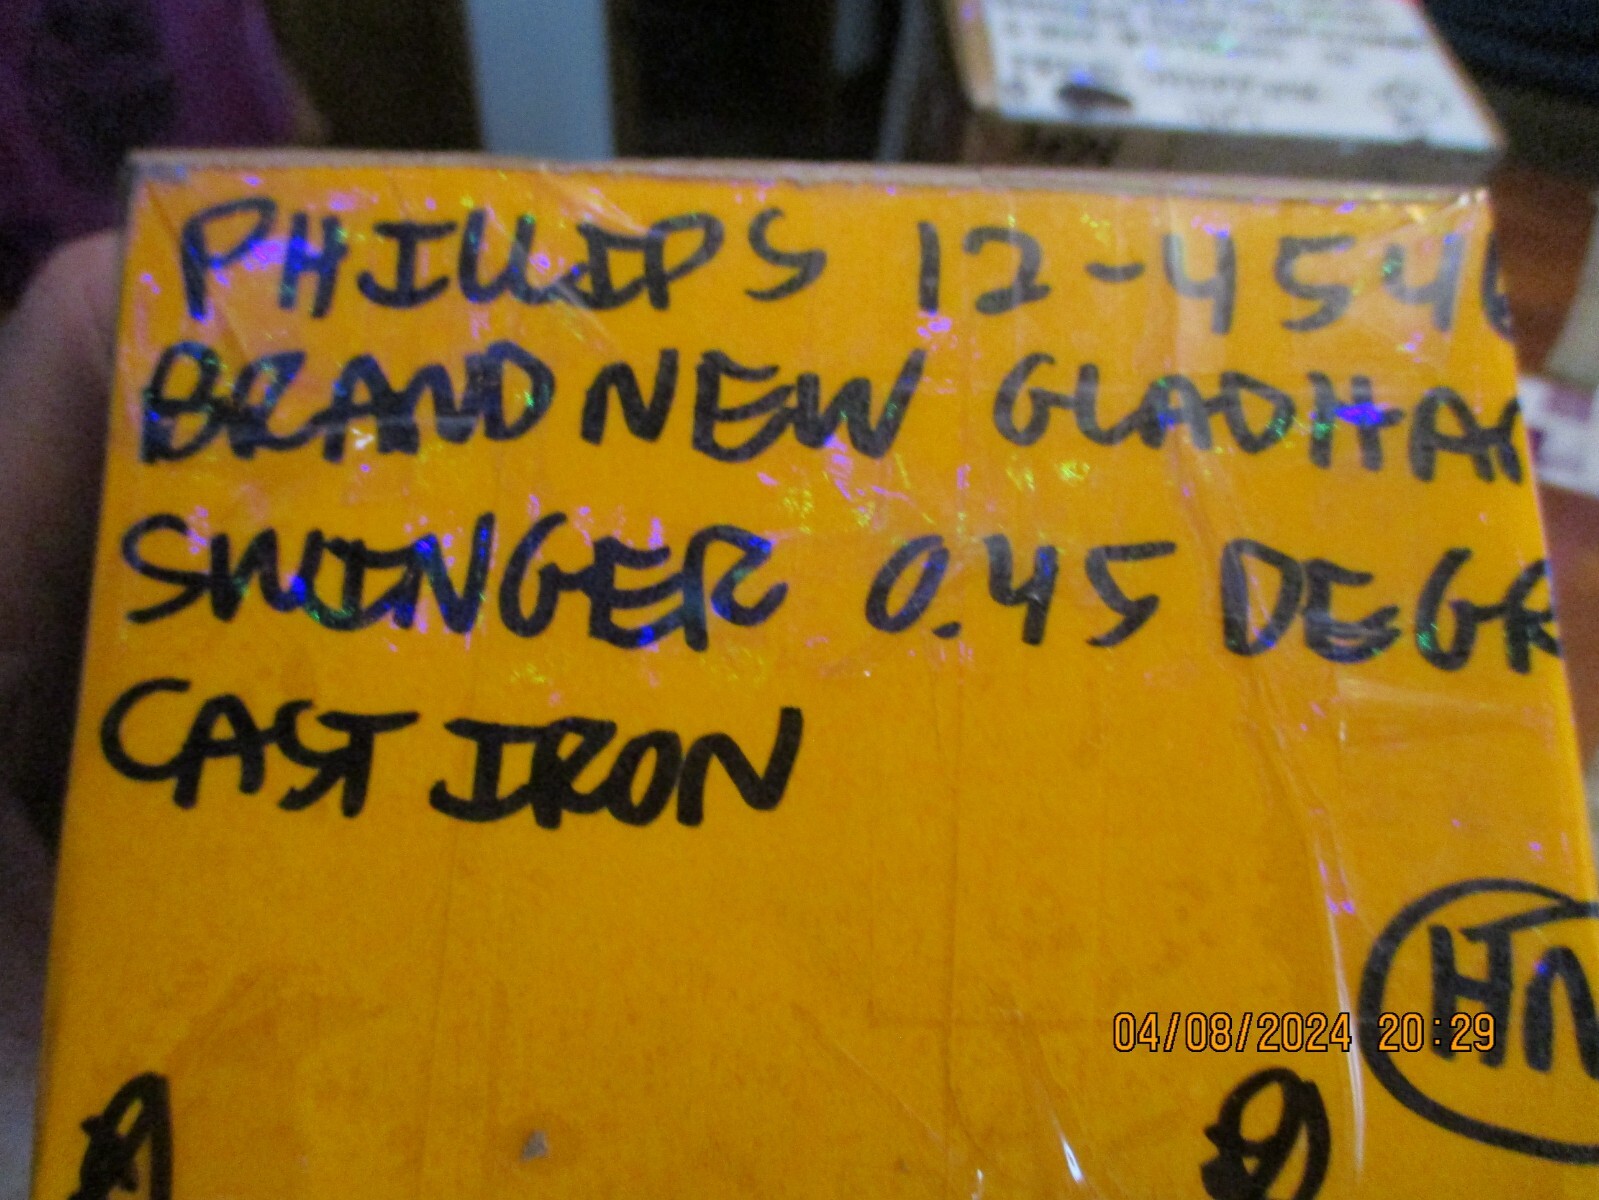 PHILLIPS 12-454
BRAND NEW GLADHA
SWINGER 0.45 DEGR
CAST IRON
HN
04/08/2024 20:29